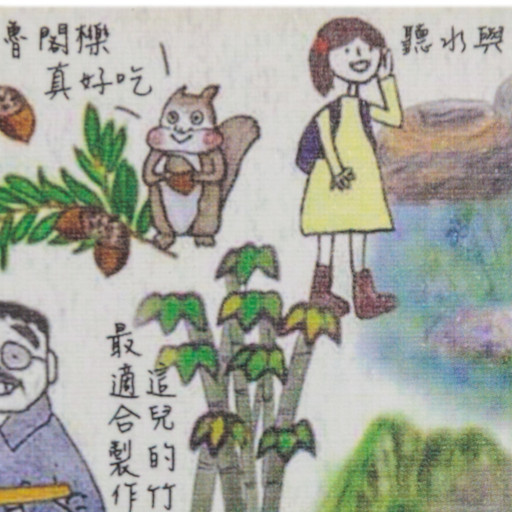 魯閣櫟
真好吃
聽水與
這兒的竹
最適合製作